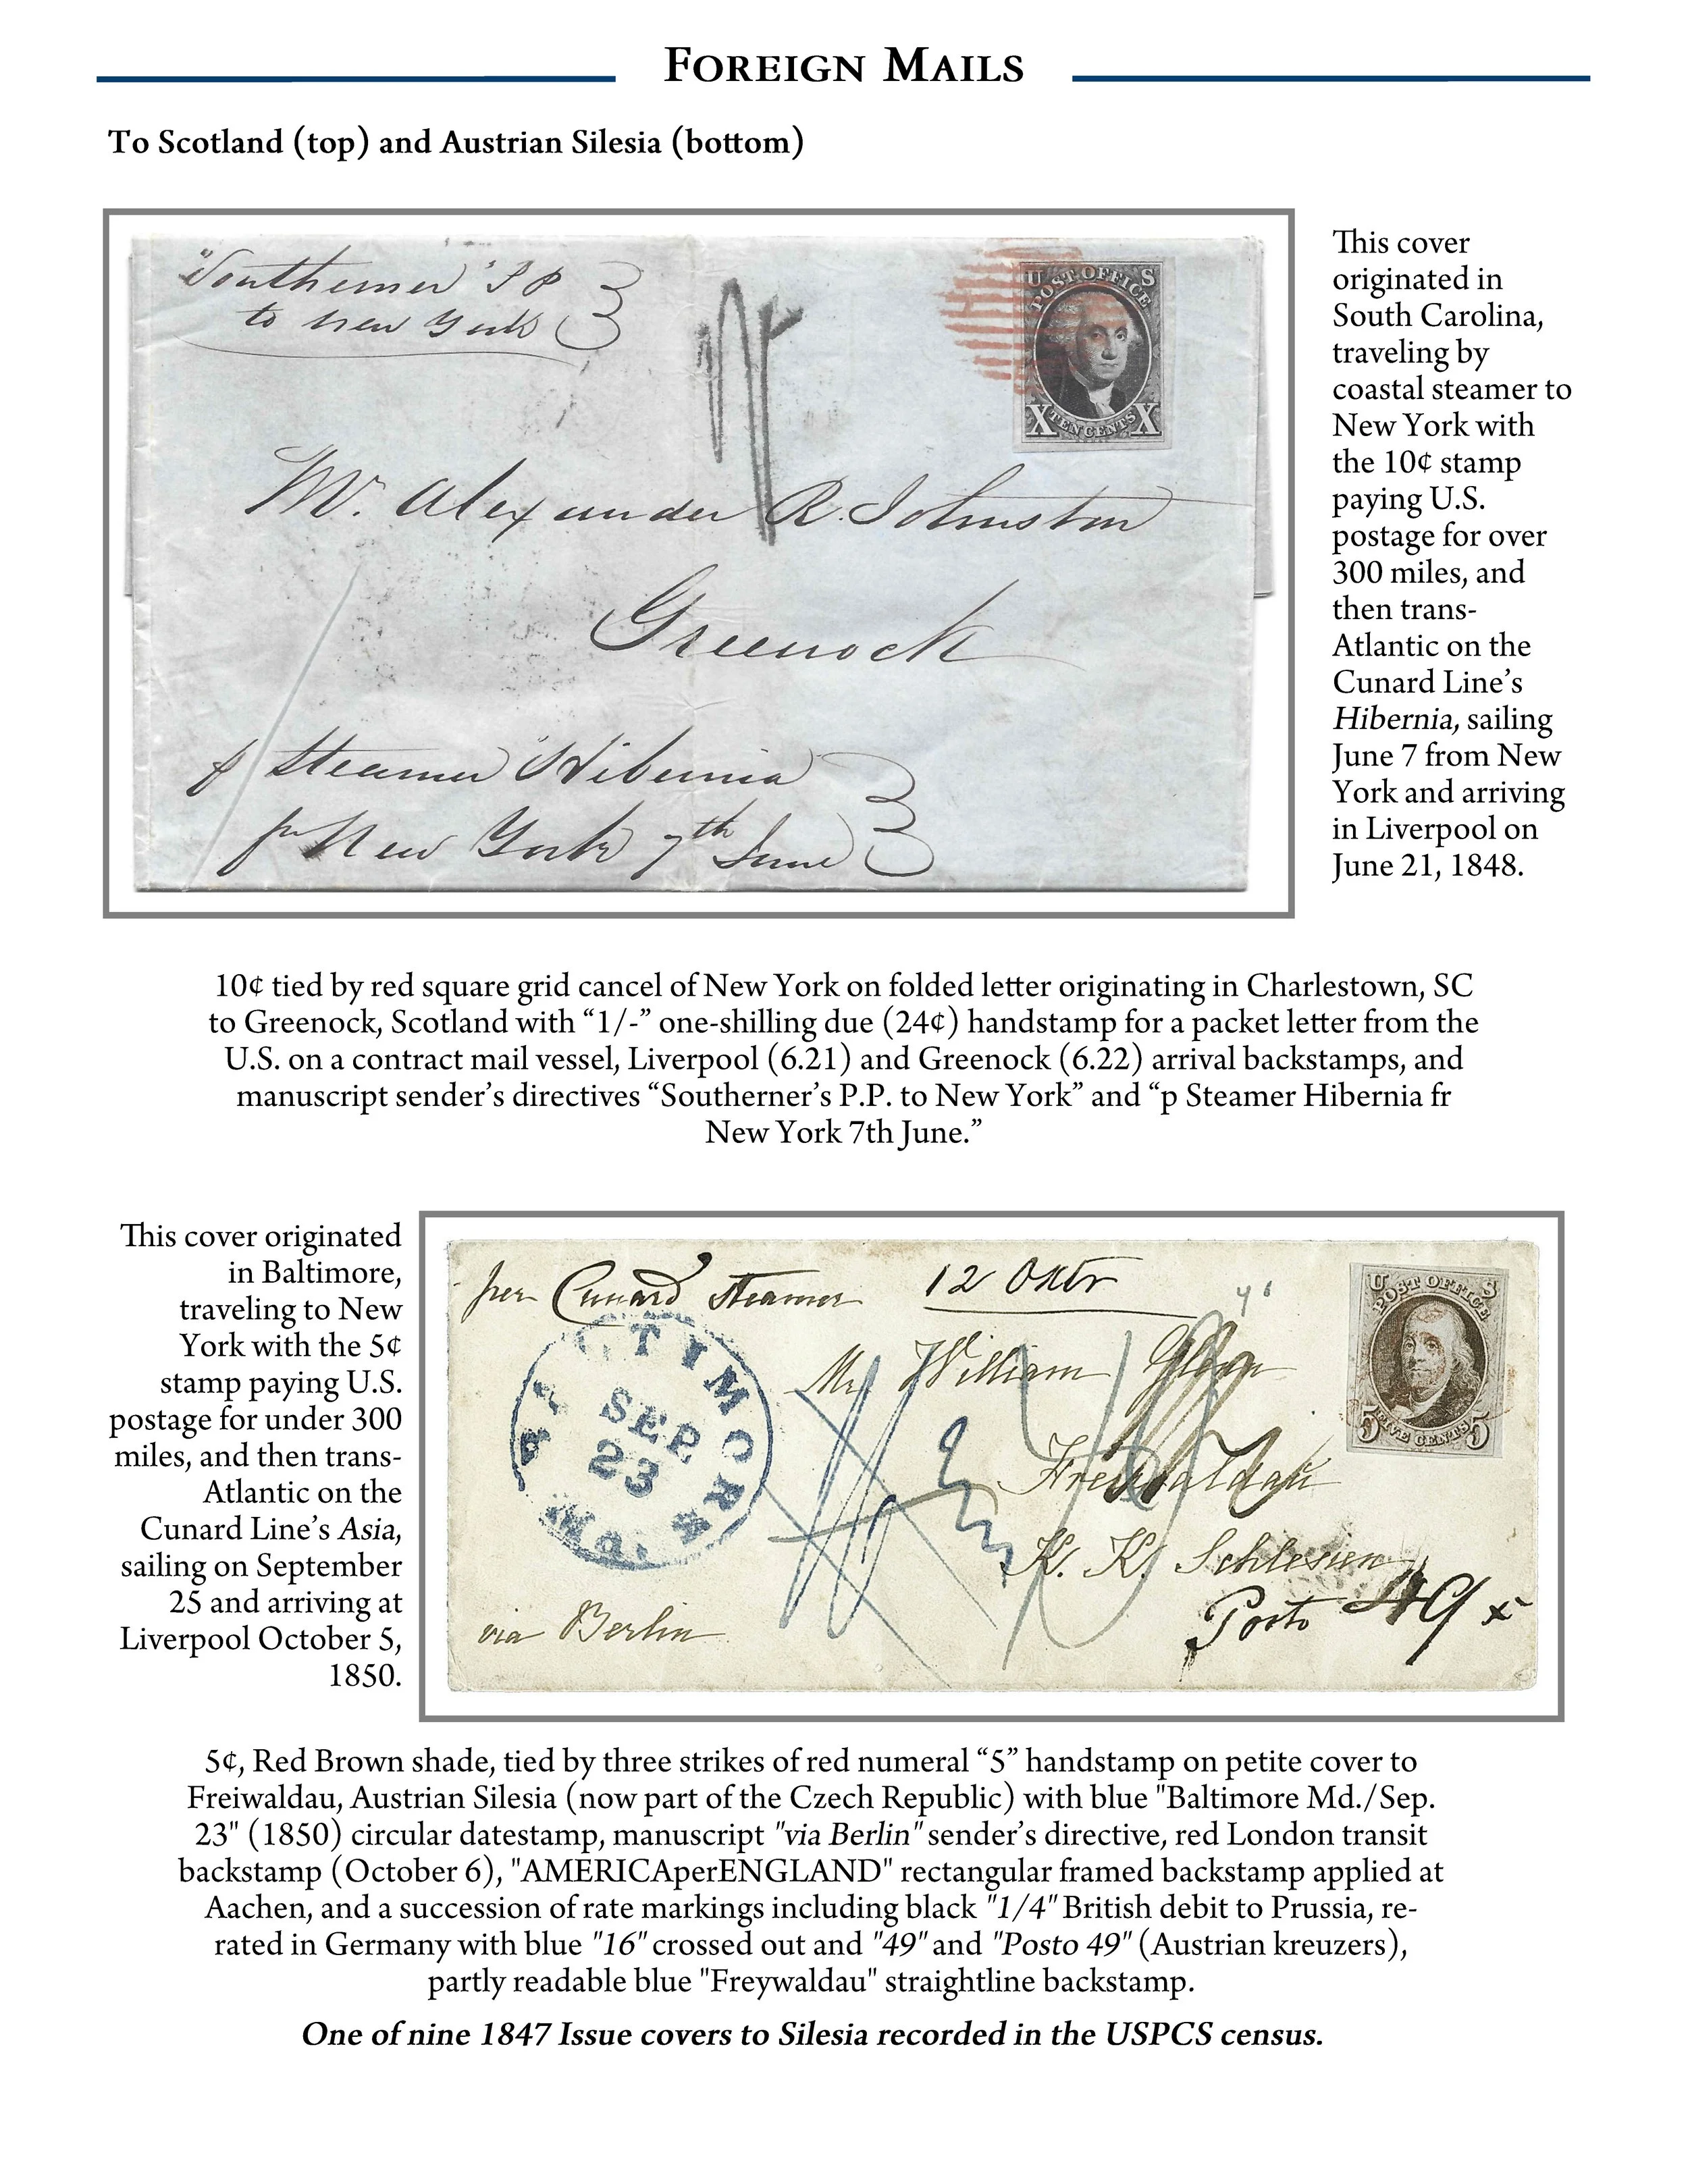 FOREIGN MAILS
To Scotland (top) and Austrian Silesia (bottom)
"Southerner" P P
to New York
U POST OFFICE S
X TEN CENTS X
Mr. Alexander R. Johnston
Greenock
p Steamer Hibernia
fr New York 7th June
This cover
originated in
South Carolina,
traveling by
coastal steamer to
New York with
the 10¢ stamp
paying U.S.
postage for over
300 miles, and
then trans-
Atlantic on the
Cunard Line’s
Hibernia, sailing
June 7 from New
York and arriving
in Liverpool on
June 21, 1848.
10¢ tied by red square grid cancel of New York on folded letter originating in Charlestown, SC
to Greenock, Scotland with “1/-” one-shilling due (24¢) handstamp for a packet letter from the
U.S. on a contract mail vessel, Liverpool (6.21) and Greenock (6.22) arrival backstamps, and
manuscript sender’s directives “Southerner’s P.P. to New York” and “p Steamer Hibernia fr
New York 7th June.”
This cover originated
in Baltimore,
traveling to New
York with the 5¢
stamp paying U.S.
postage for under 300
miles, and then trans-
Atlantic on the
Cunard Line’s Asia,
sailing on September
25 and arriving at
Liverpool October 5,
1850.
per Cunard Steamer 12 Oktr
U POST OFFICE S
5 FIVE CENTS 5
BALTIMORE
SEP
23
Md.
Mr William
Freiwaldau
K. K. Schlesien
Porto 49 x
via Berlin
5¢, Red Brown shade, tied by three strikes of red numeral “5” handstamp on petite cover to
Freiwaldau, Austrian Silesia (now part of the Czech Republic) with blue "Baltimore Md./Sep.
23" (1850) circular datestamp, manuscript "via Berlin" sender’s directive, red London transit
backstamp (October 6), "AMERICAperENGLAND" rectangular framed backstamp applied at
Aachen, and a succession of rate markings including black "1/4" British debit to Prussia, re-
rated in Germany with blue "16" crossed out and "49" and "Posto 49" (Austrian kreuzers),
partly readable blue "Freywaldau" straightline backstamp.
One of nine 1847 Issue covers to Silesia recorded in the USPCS census.